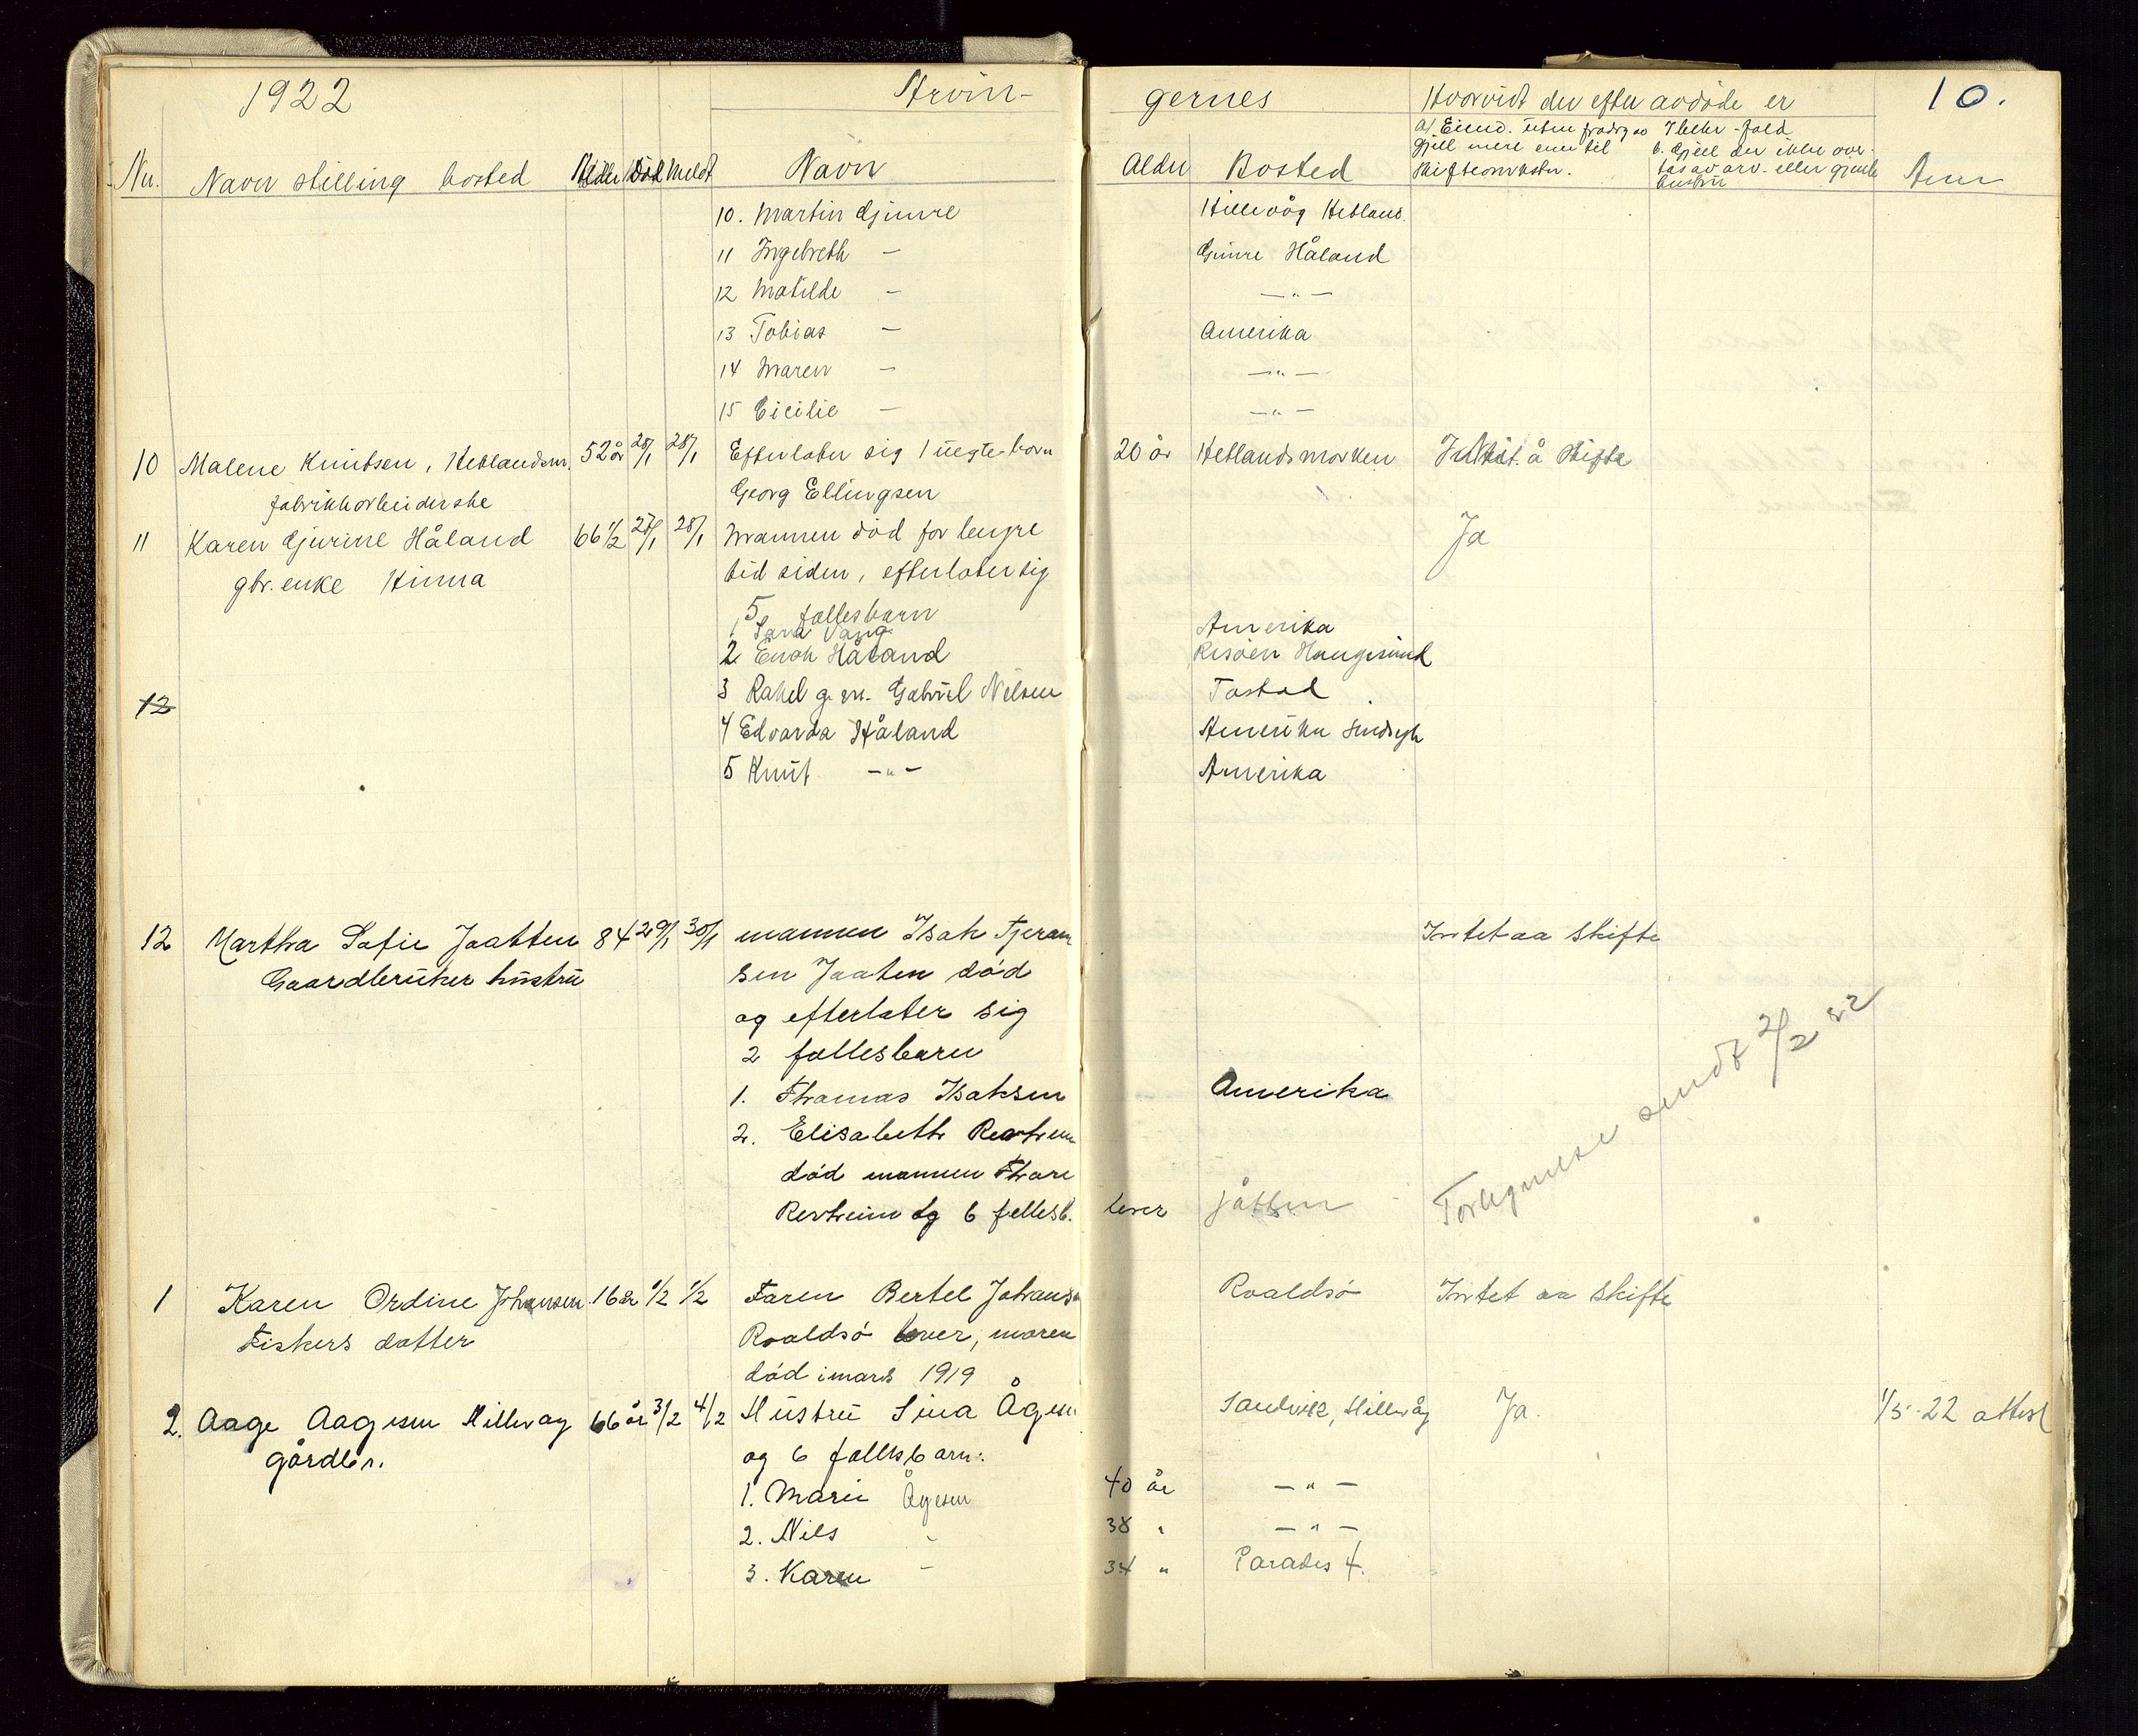 1922
Arvin-
gernes
Hvorvidt der efter avdøde er
10.
Nr. Navn stilling bosted Alder Død Meldt Navn
Alder Bosted
skifteomkostn.
Anm
10. Martin Gjimre Hillevåg Hetland.
11 Ingebreth — Gimre Håland
12 Matilde — —"—
13 Tobias — Amerika
14 Maren — —"—
15 Cicilie — —"—
10 Malene Knutsen, Hetlandsm. 52 år 28/1 28/1 Efterlater sig 1 uegte barn 20 år Hetlandsmarken Intet å skifte
fabrikkarbeiderske Georg Ellingsen
11 Karen Gjurine Håland 66 1/2 27/1 28/1 Mannen död for lengre Ja
gbr. enke Hinna tid siden, efterlater sig
5 fællesbarn
1 Sara Vang Amerika
2 Enok Håland Risøen Haugesund
12
3 Rahel g. m. Gabriel Nilsen Tastad
4 Edvarda Håland Amerika
5 Knut —"— Amerika
12 Martha Sofie Jaatten 84 29/1 30/1 mannen Isak Tjeram Intet aa skifte
Gaardbruker hustru sen Jaaten död
og efterlater sig
2 fællesbarn
1. Thomas Isaksen Amerika
2. Elisabeth Restheim
död mannen Thore
Restheim og 6 fellesb. lever Jåtten
Forlegnelse sendt 2/2 22
1 Karen Ordine Johansen 16 år 1/2 1/2 Faren Bertel Johans Roaldsö Intet aa skifte
Fiskers datter Roaldsö lever, moren
död i mars 1919
2. Aage Aagesen Hillevag 66 år 3/2 4/2 Hustru Sina Ågesen Sandvik, Hillevåg Ja. 1/5-22 attest
gårdbr. og 6 fællesbarn:
1. Marie Ågesen 40 år —"—
2. Nils - 38 " —"—
3. Karen — 34 " Paradis 4.